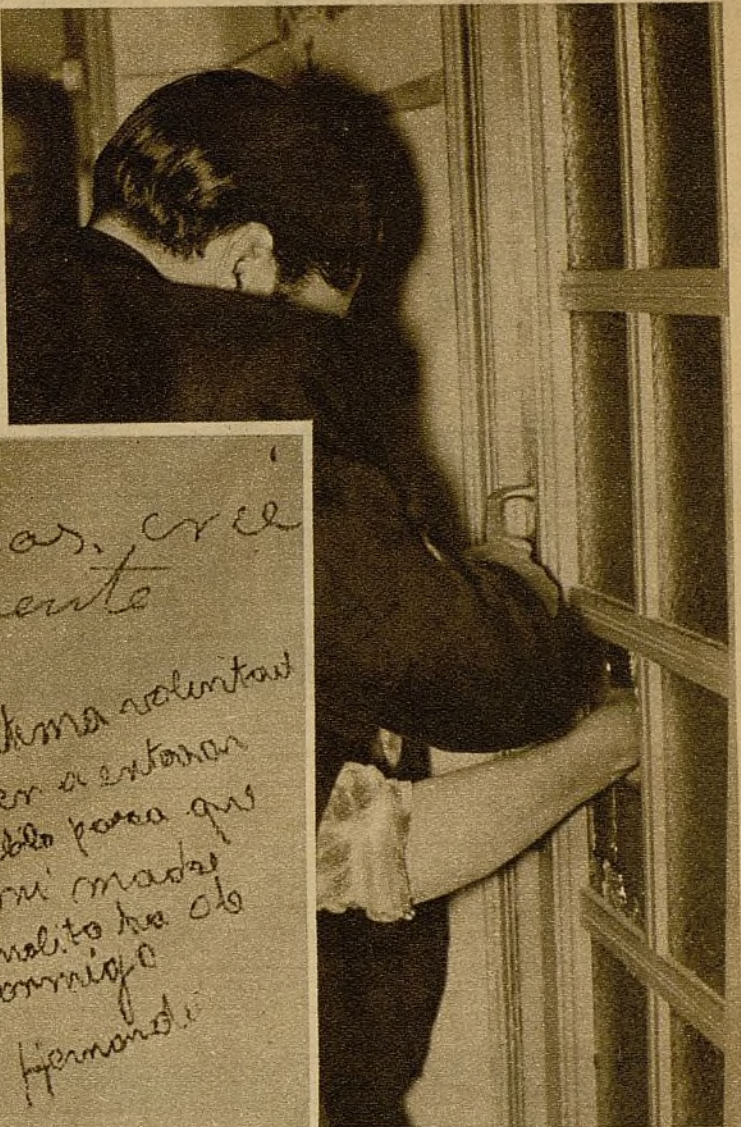 as. creé
ente
tima voluntad
en a enterrar
eblo para que
mi madre
nolito ha ob
onmigo
Hernand